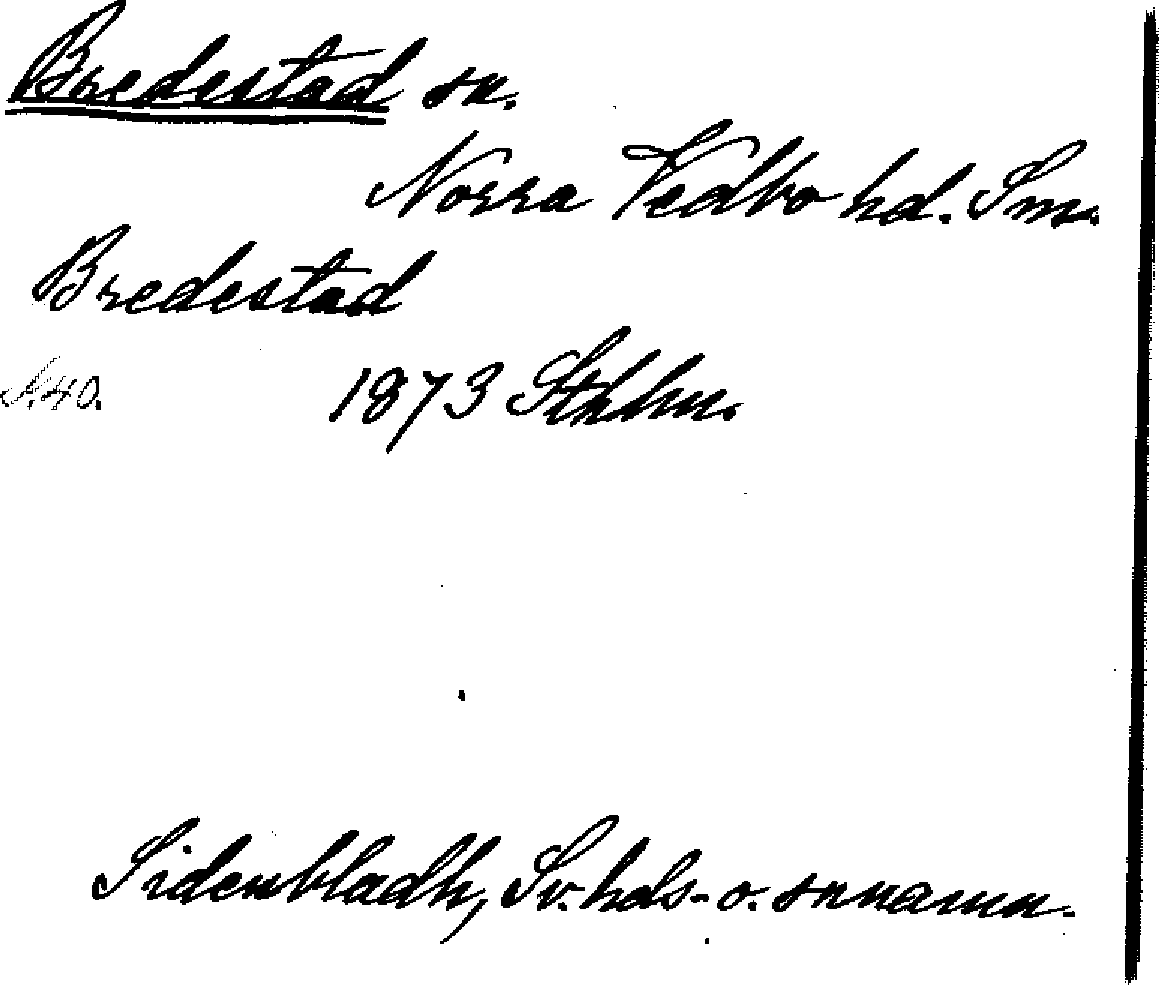 Bredestad sn.
Norra Vedbo hd. Sm.
Bredestad
S. 40. 1873 Sthlm.
Sidenbladh, Sv. hds- o. snnamn.